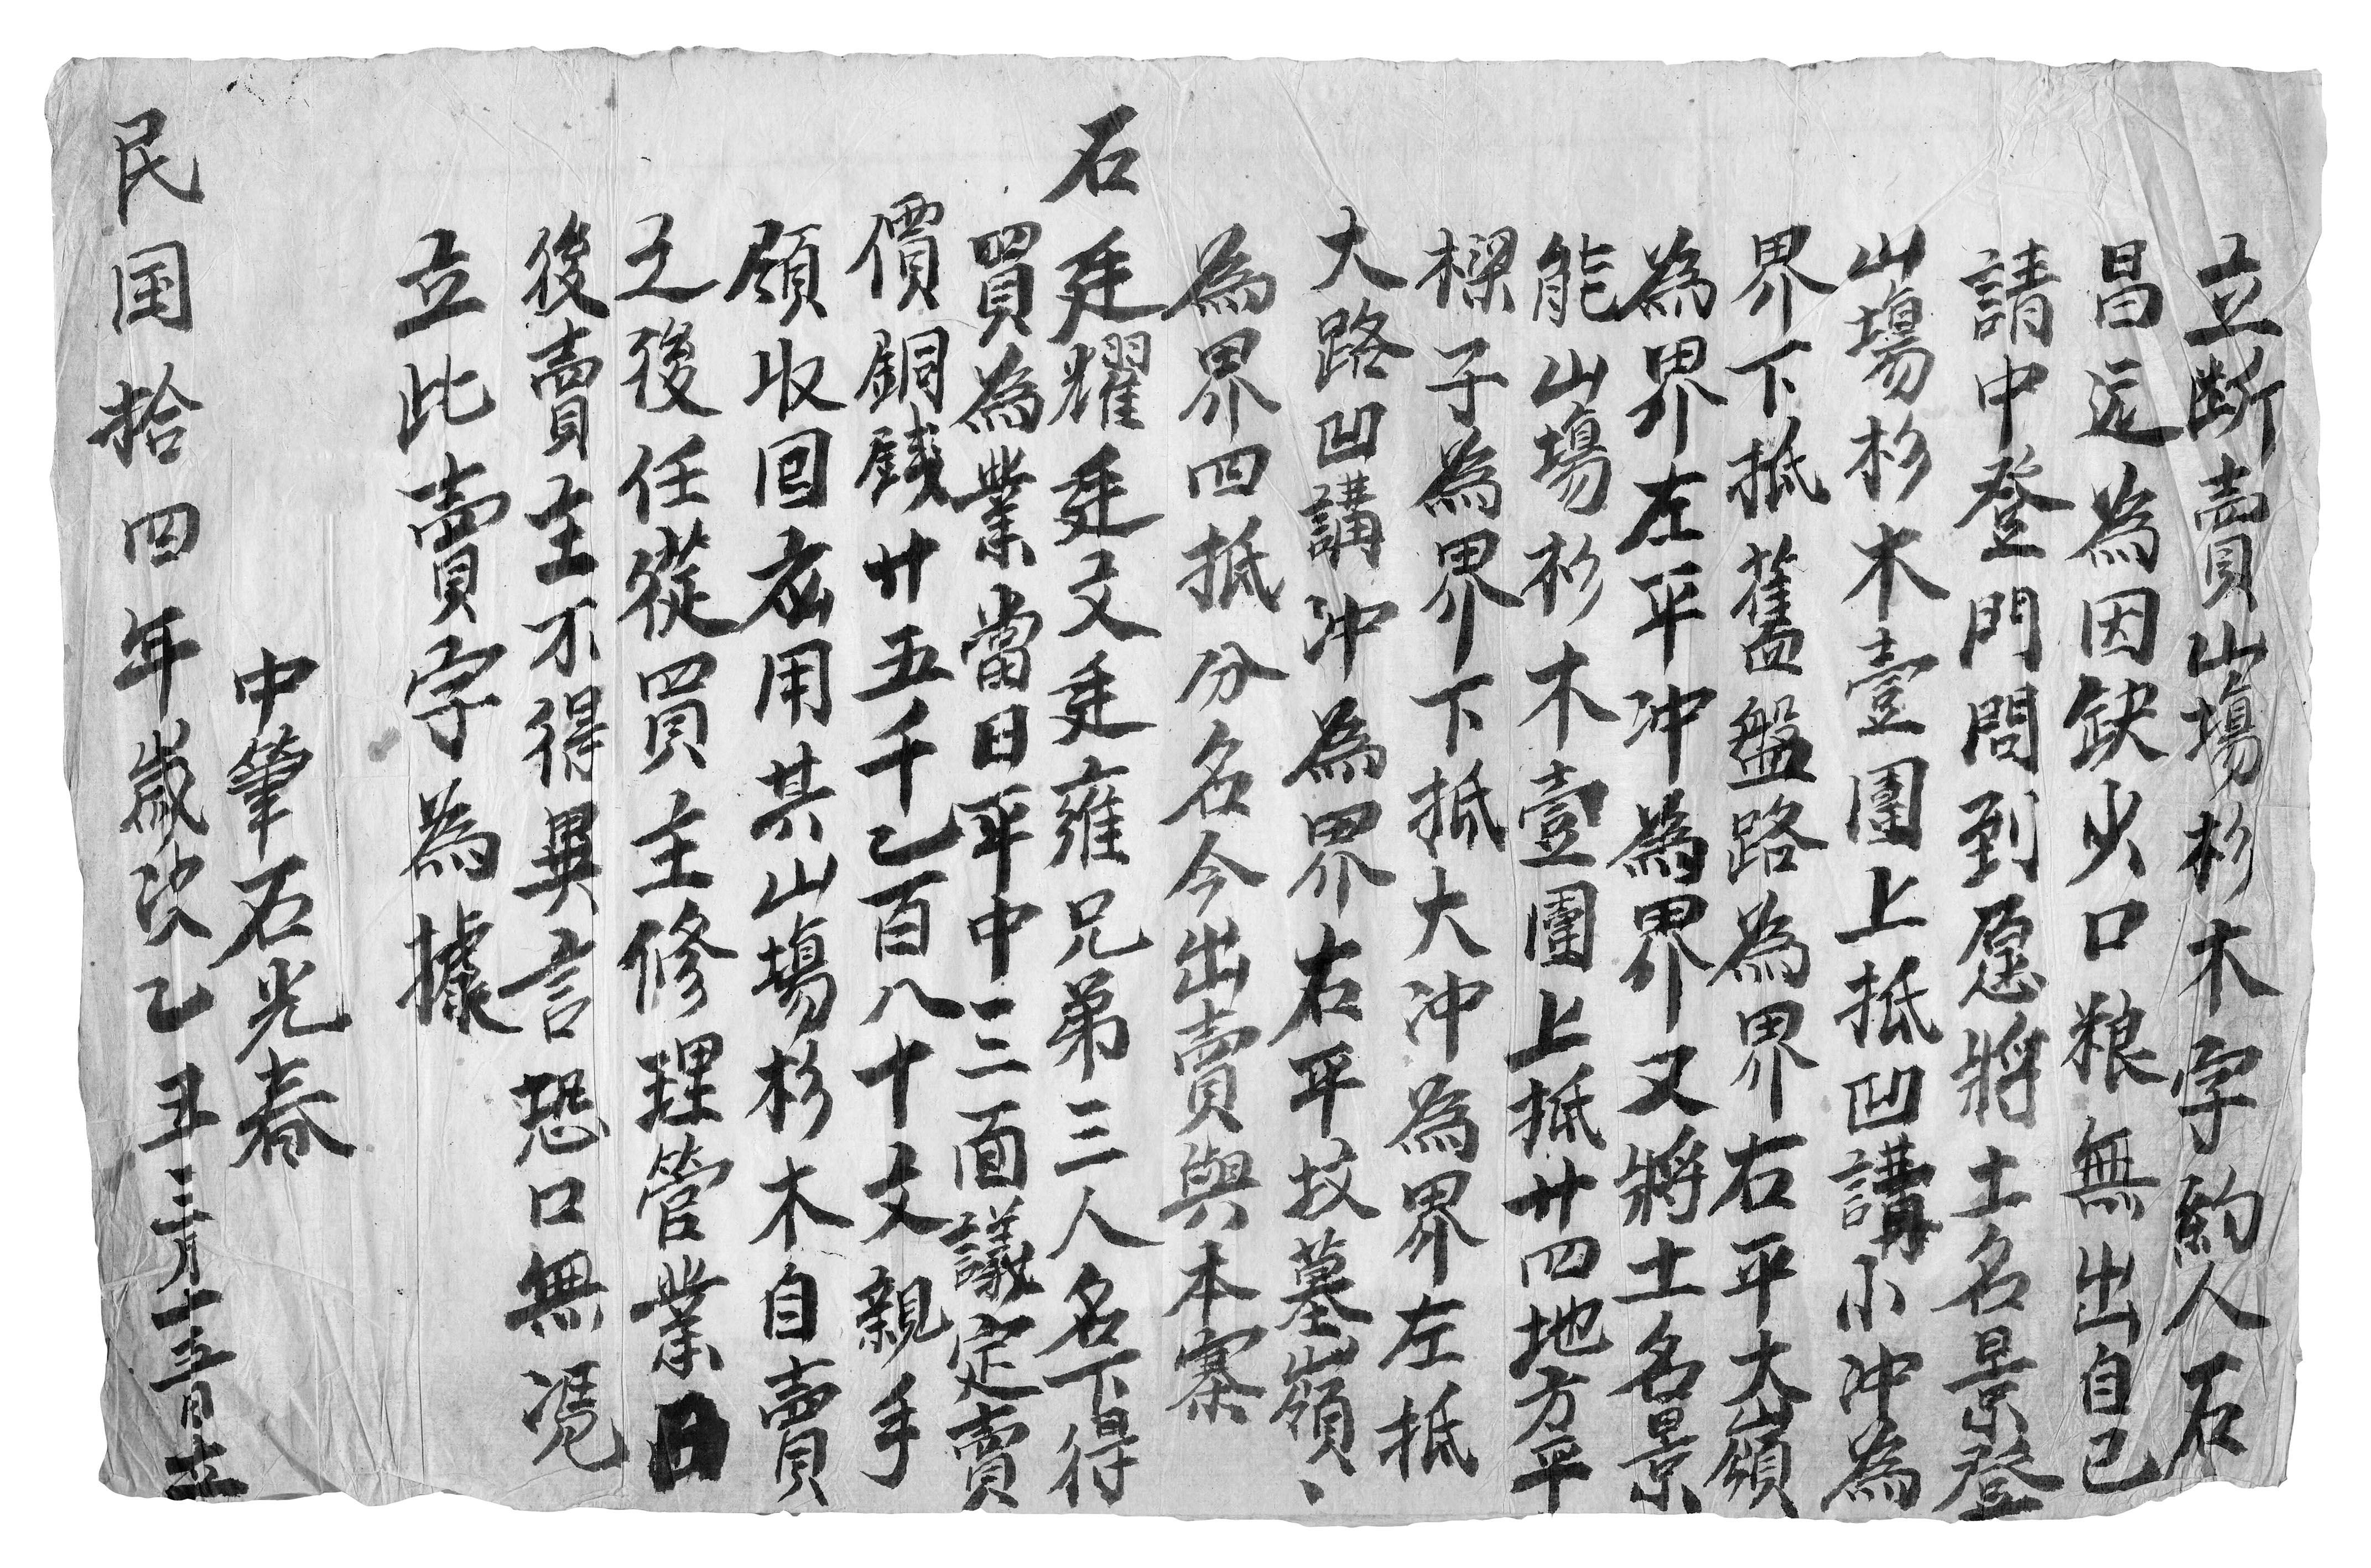 立断賣山塲杉木字約人石
昌远為因缺少口粮無出自己
請中登門問到愿將土名景登
山塲杉木壹團上抵凹講小冲為
界下抵舊盤路為界右平大嶺
為界左平冲為界又將土名景
能山塲杉木壹團上抵廿四地方平
樑子為界下抵大冲為界左抵
大路凹講冲為界右平技墓嶺、
為界四抵分名今出賣與本寨
石廷耀廷文廷雍兄弟三人名下得
買為業當日平中三面議定賣
價銅錢廿五千乙百八十文親手
領收回應用其山塲杉木自賣
之後任從買主修理管業日
後賣主不得異言恐口無凴
立此賣字為據
中筆石光春
民国拾四年歲次乙丑三月十三日立